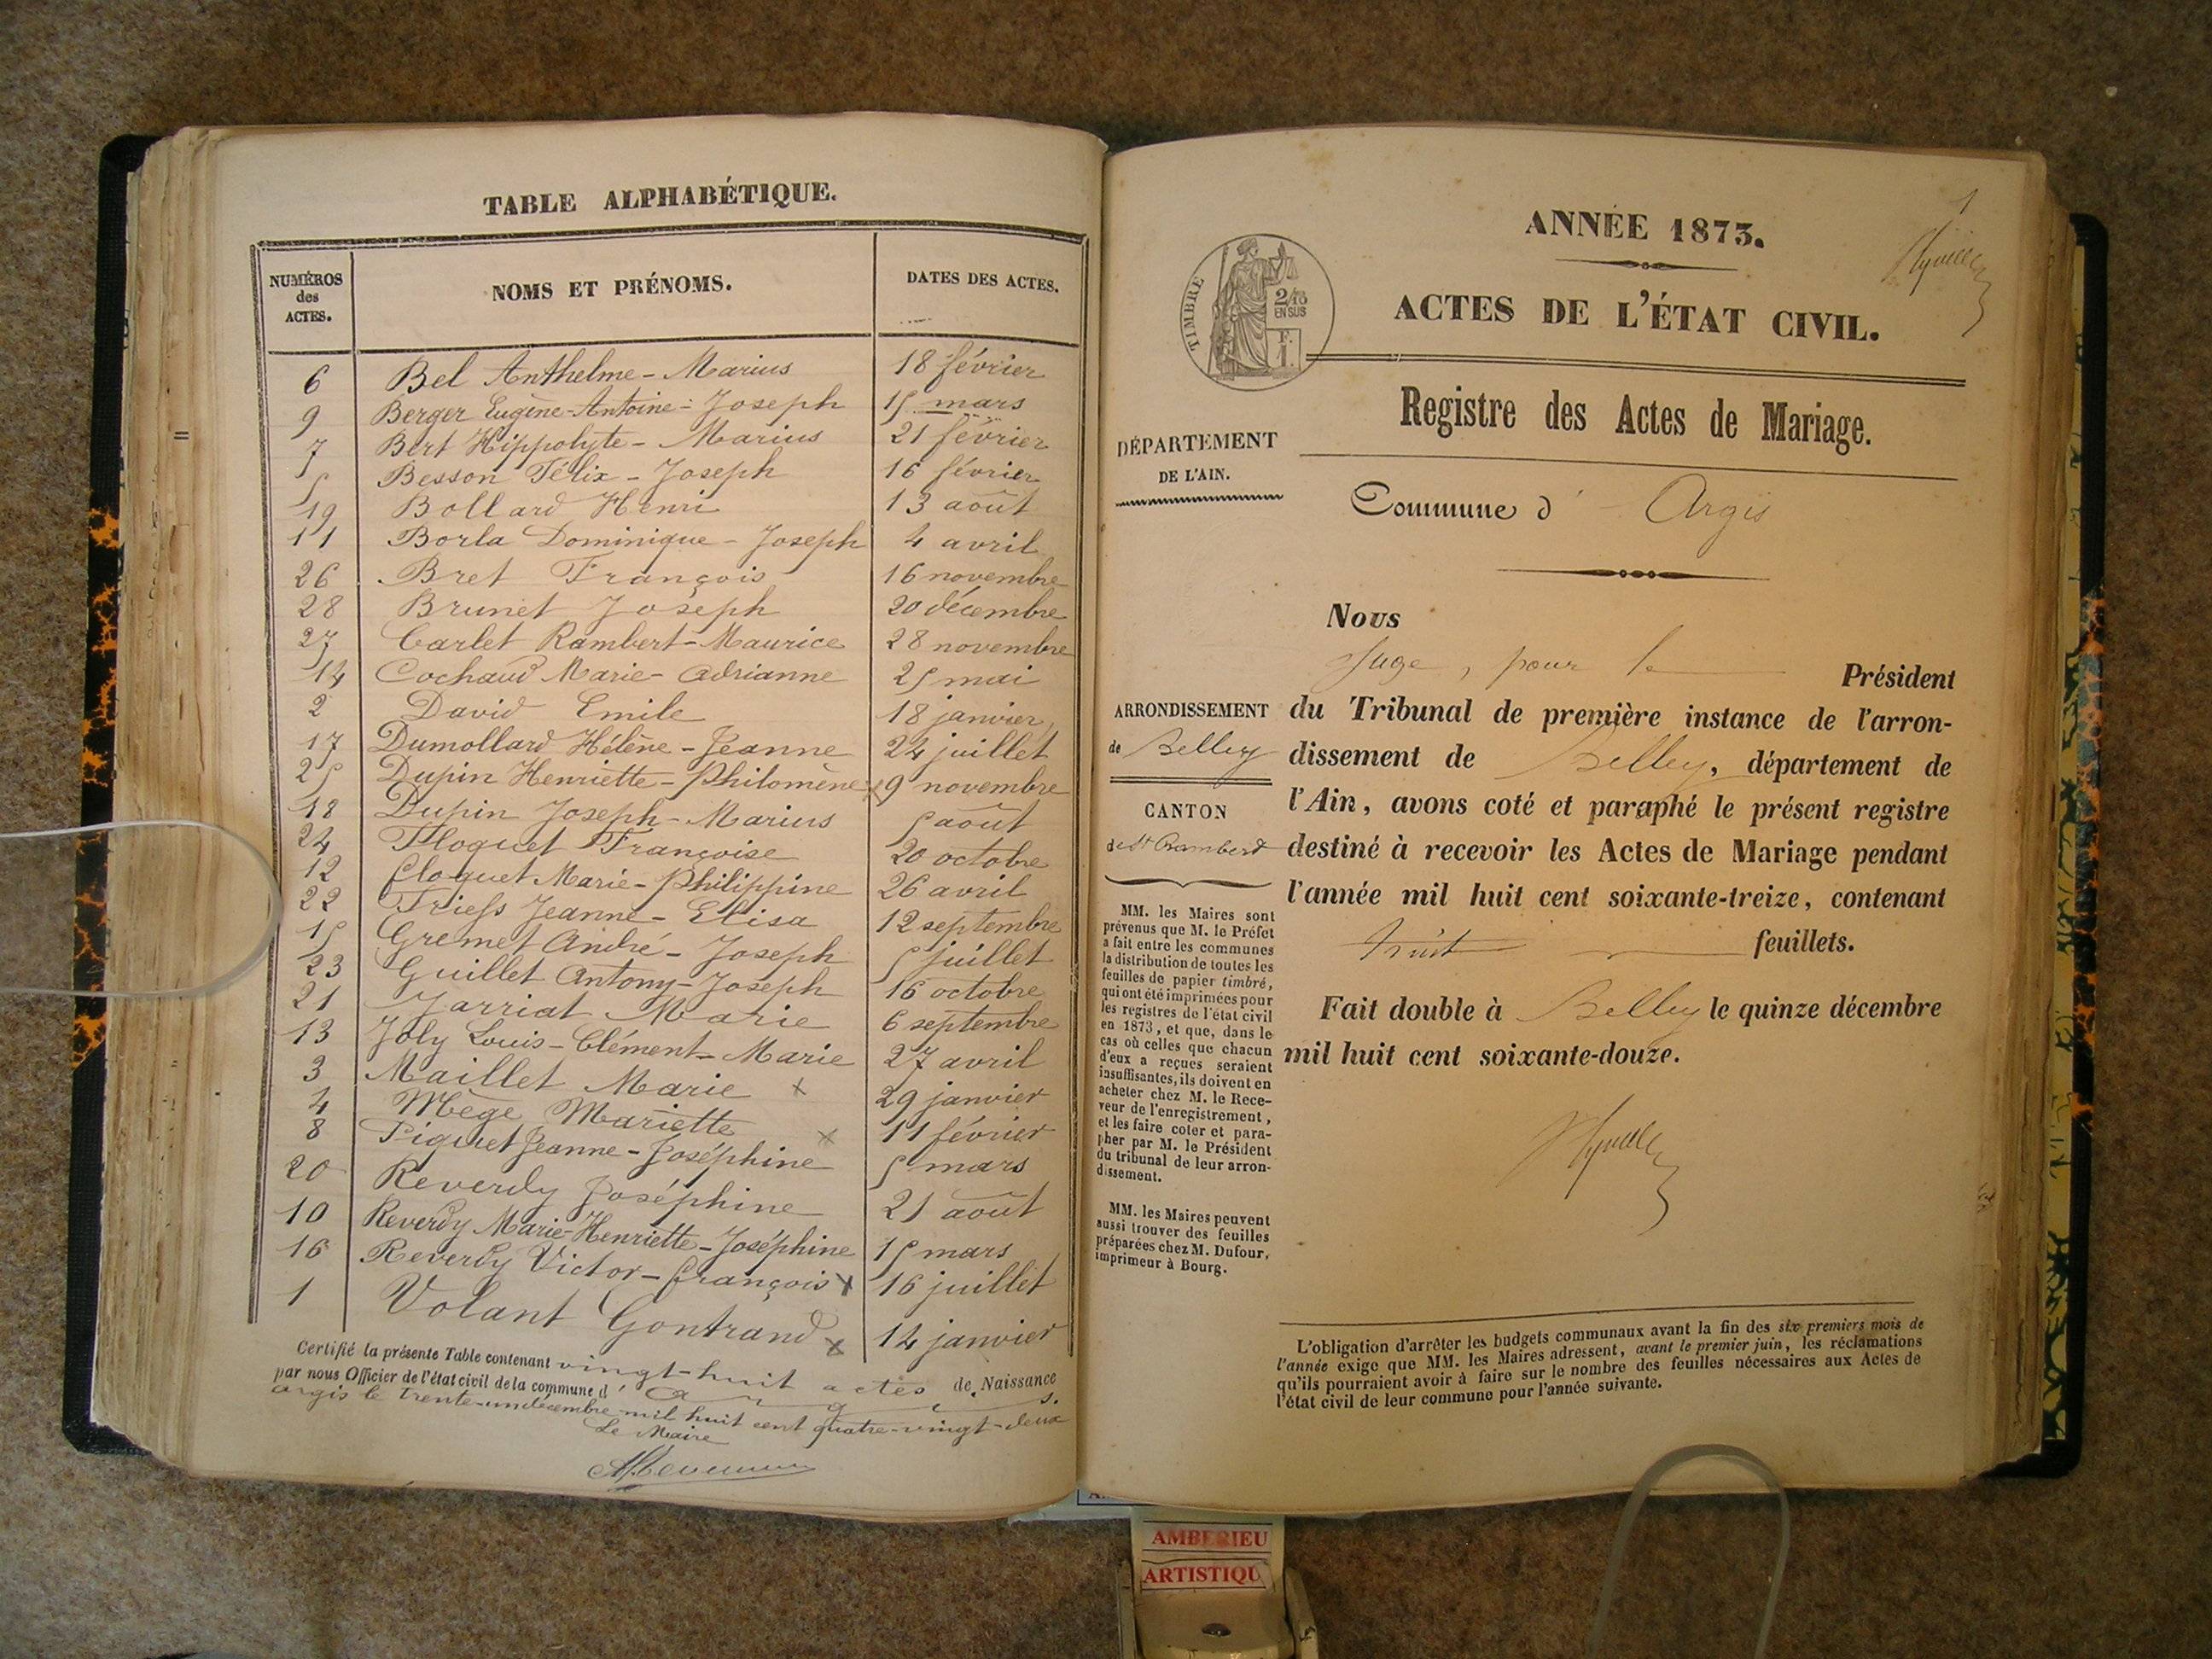 TABLE ALPHABÉTIQUE.
NUMÉROS des ACTES. NOMS ET PRÉNOMS. DATES DES ACTES.
6 Bel Anthelme - Marius 18 février
9 Berger Eugène-Antoine-Joseph 15 mars
7 Bert Hippolyte - Marius 21 février
5 Besson Félix - Joseph 16 février
19 Bollard Henri 13 août
11 Borla Dominique - Joseph 4 avril
26 Bret François 16 novembre
28 Brunet Joseph 20 décembre
27 Carlet Rambert-Maurice 28 novembre
14 Cochaud Marie-Adrianne 25 mai
2 David Emile 18 janvier
17 Dumollard Hélène-Jeanne 24 juillet
25 Dupin Henriette-Philomène 9 novembre
18 Dupin Joseph-Marius 5 août
24 Floquet Françoise 20 octobre
12 Cloquet Marie-Philippine 26 avril
22 Friess Jeanne-Elisa 12 septembre
15 Gremet André-Joseph 5 juillet
23 Guillet Antony-Joseph 16 octobre
21 Jarriat Marie 6 septembre
13 Joly Louis-Clément-Marie 27 avril
3 Maillet Marie x 29 janvier
4 Mège Mariette x 11 février
8 Piquet Jeanne-Joséphine 5 mars
20 Reverdy Joséphine 21 août
10 Reverdy Marie-Henriette-Joséphine 15 mars
16 Reverdy Victor-François x 16 juillet
1 Volant Gontrand x 14 janvier
Certifié la présente Table contenant vingt-huit actes de Naissance
par nous Officier de l'état civil de la commune d'Argis.
argis le trente-un décembre mil huit cent quatre-vingt-deux
Le Maire
1
ANNÉE 1873.
ACTES DE L'ÉTAT CIVIL.
TIMBRE
2/10
EN SUS
F.
1.
Registre des Actes de Mariage.
DÉPARTEMENT
DE L'AIN.
Commune d' Argis
Nous
Juge, pour le Président
ARRONDISSEMENT
de Belley
du Tribunal de première instance de l'arron-
dissement de Belley, département de
l'Ain, avons coté et paraphé le présent registre
destiné à recevoir les Actes de Mariage pendant
l'année mil huit cent soixante-treize, contenant
huit feuillets.
Fait double à Belley le quinze décembre
mil huit cent soixante-douze.
CANTON
de St Rambert
MM. les Maires sont
prévenus que M. le Préfet
a fait entre les communes
la distribution de toutes les
feuilles de papier timbré,
qui ont été imprimées pour
les registres de l'état civil
en 1873, et que, dans le
cas où celles que chacun
d'eux a reçues seraient
insuffisantes, ils doivent en
acheter chez M. le Rece-
veur de l'enregistrement,
et les faire coter et para-
pher par M. le Président
du tribunal de leur arron-
dissement.
MM. les Maires peuvent
aussi trouver des feuilles
préparées chez M. Dufour,
imprimeur à Bourg.
L'obligation d'arrêter les budgets communaux avant la fin des six premiers mois de
l'année exige que MM. les Maires adressent, avant le premier juin, les réclamations
qu'ils pourraient avoir à faire sur le nombre des feuilles nécessaires aux Actes de
l'état civil de leur commune pour l'année suivante.
AMBERIEU
ARTISTIQU